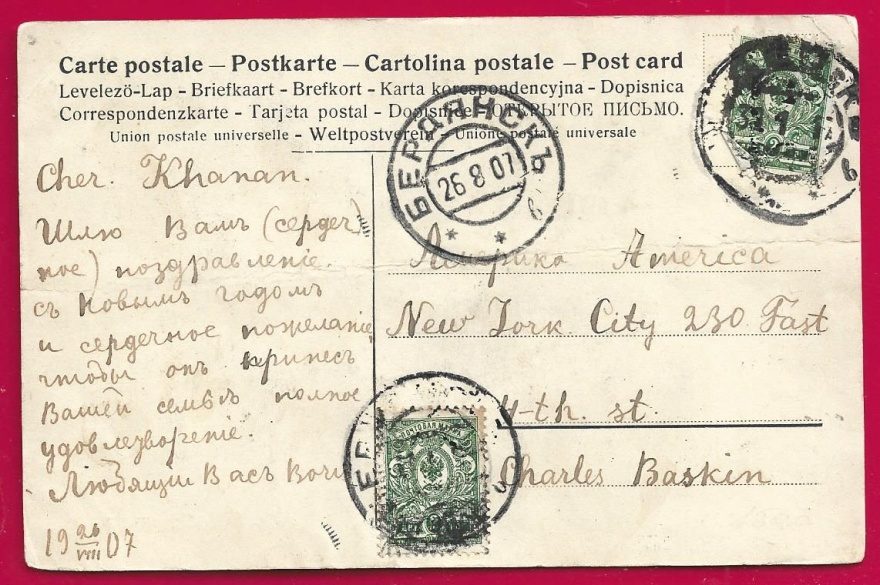 Carte postale – Postkarte – Cartolina postale – Post card
Levelező-Lap - Briefkaart - Brefkort - Karta korespondencyjna - Dopisnica
Correspondenzkarte - Tarjeta postal - Dopisnice ОТКРЫТОЕ ПИСЬМО.
Union postale universelle - Weltpostverein - Unione postale universale
БЕРДЯНСКЪ
26 8 07
Cher. Khanan.
Шлю Вамъ (сердеч
ное) поздравленіе.
съ новымъ годомъ
и сердечное пожеланіе
чтобы онъ принесъ
Вашей семьѣ полное
удовлезвореніе.
Любящій Васъ
19 26/VIII 07
Америка America
New York City 230 East
4-th. st.
Charles Baskin
ПОЧТОВАЯ МАРКА